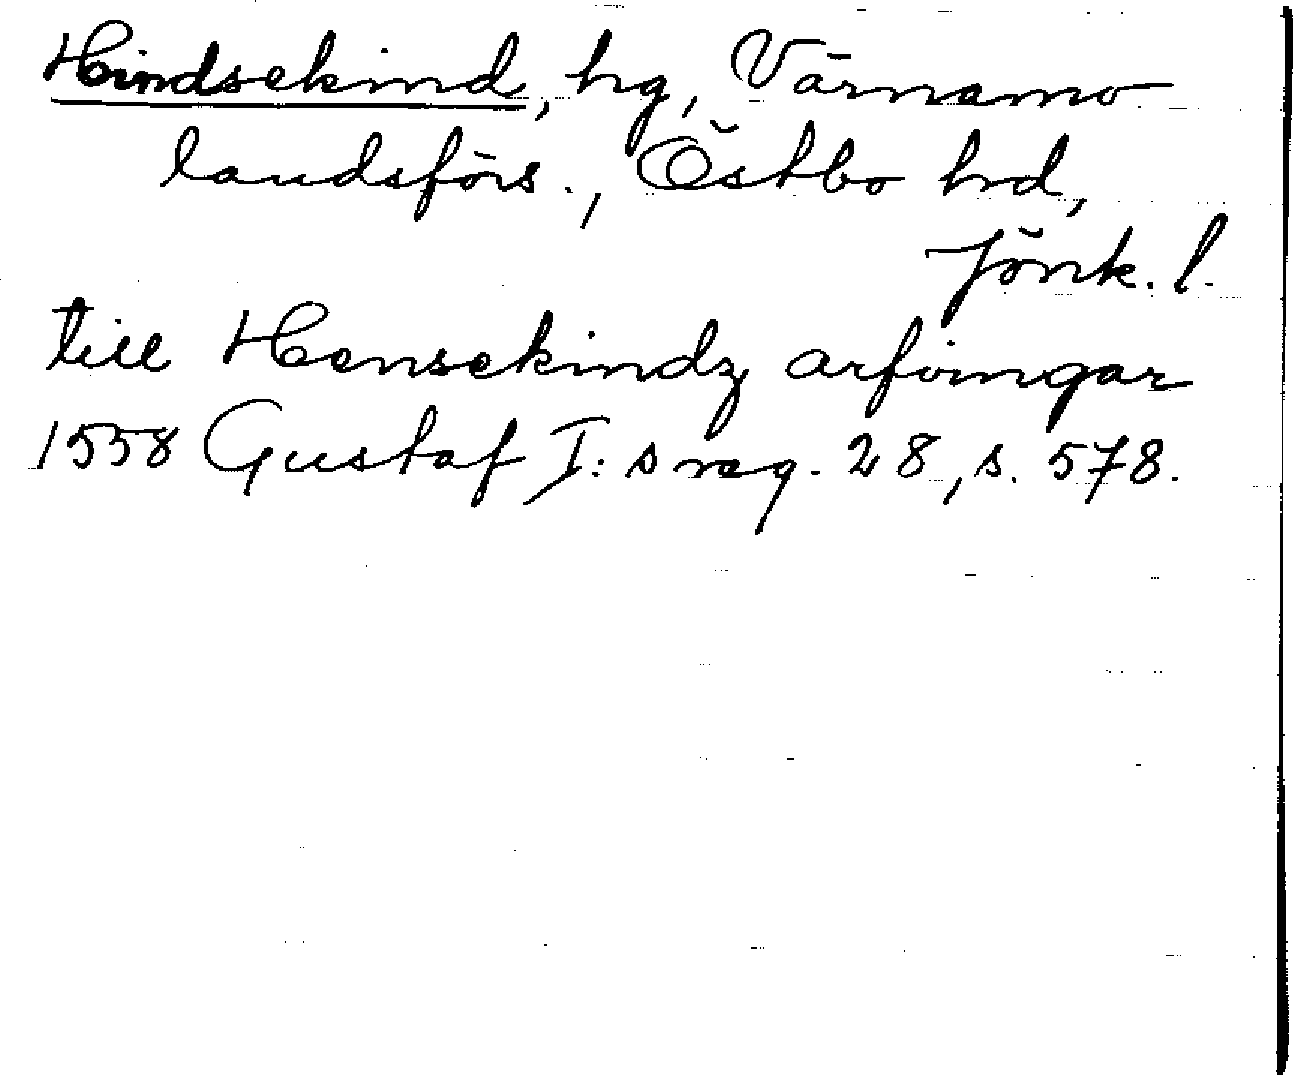 Hindsekind, hg, Värnamo
landsförs., Östbo hd,
Jönk. l.
till Hensekindz arfvingar
1558 Gustaf I: s reg. 28, s. 578.